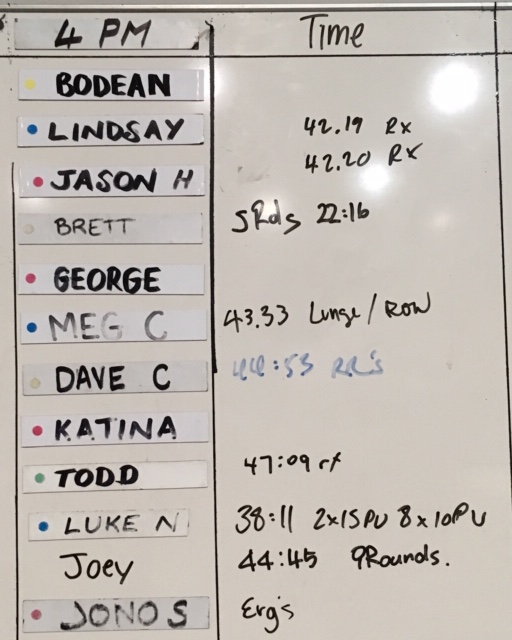 4 PM Time
BODEAN
LINDSAY 42.19 Rx
42.20 Rx
JASON H
BRETT 5Rds 22:16
GEORGE
MEG C 43.33 Lunge/ROW
DAVE C 44:53 RR's
KATINA
TODD 47:09 rx
LUKE N 38:11 2x15PU 8x10PU
Joey 44:45 9Rounds.
JONO S Erg's